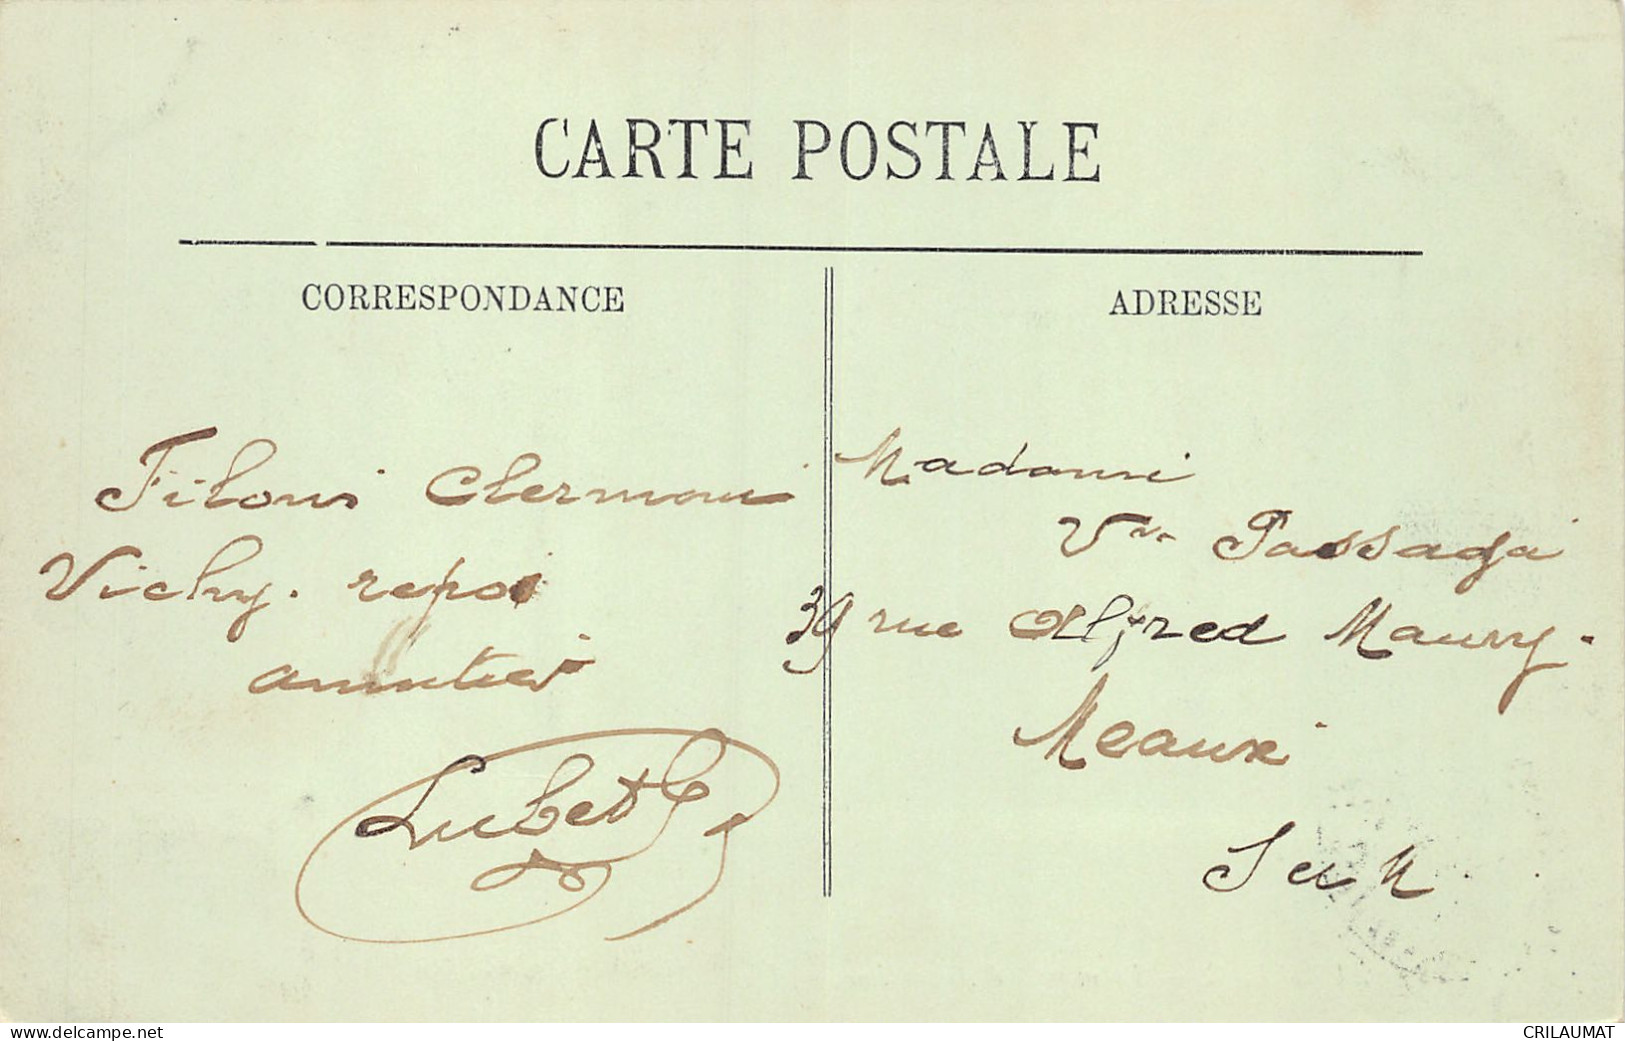 CARTE POSTALE
CORRESPONDANCE
ADRESSE
Filons Clermont
Vichy. repos
amitiés
Lubet
Madame
Vve Passaga
39 rue Alfred Maury.
Meaux
S et M.
www.delcampe.net
CRILAUMAT